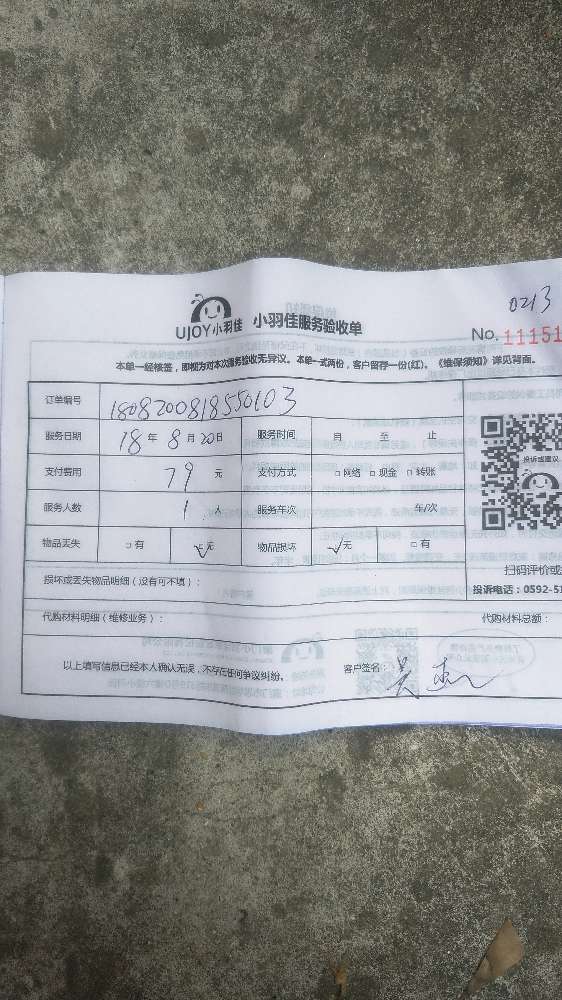 0213
UJOY小羽佳 小羽佳服务验收单
No. 11151
本单一经核签，即视为对本次服务验收无异议。本单一式两份，客户留存一份(红)。《维保须知》详见背面。
订单编号 1808200818550103
服务日期 18 年 8 月 20 日 服务时间 月 至 止
投诉或建议
支付费用 79 元 支付方式 □网络 □现金 □转账
服务人数 1 人 服务车次 车/次
物品丢失 □有 ☑无 物品损坏 ☑无 □有
扫码评价或
损坏或丢失物品明细（没有可不填）：
投诉电话：0592-51
代购材料明细（维修业务）： 代购材料总额：
以上填写信息已经本人确认无误，不存在任何争议纠纷。 客户签名：吴